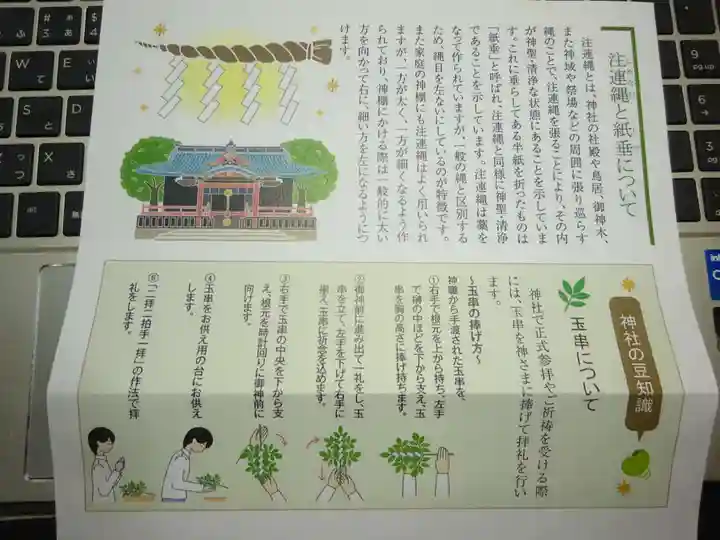 注連縄と紙垂について
注連縄とは、神社の社殿や鳥居、御神木、
また神域や祭場などの周囲に張り巡らす
縄のことで、注連縄を張ることにより、その内
が神聖・清浄な状態にあることを示していま
す。これに垂らしてある半紙を折ったものは
「紙垂」と呼ばれ、注連縄と同様に神聖・清浄
であることを示しています。注連縄は藁を
なって作られていますが、一般の縄と区別する
ため、縄目を左ないにしているのが特徴です。
また家庭の神棚にも注連縄はよく用いられ
ますが、一方が太く、一方が細くなるよう作
られており、神棚にかける際は一般的に太い
方を向かって右に、細い方を左になるようにつ
けます。
神社の豆知識
玉串について
神社で正式参拝やご祈祷を受ける際
には、玉串を神さまに捧げて拝礼を行い
ます。
〜玉串の捧げ方〜
神職から手渡された玉串を、
①右手で根元を上から持ち、左手
で榊の中ほどを下から支え、玉
串を胸の高さに捧げ持ちます。
②御神前に進み出て一礼をし、玉
串を立て、左手を下げて右手に
揃え、玉串に祈念を込めます。
③右手で玉串の中央を下から支
え、根元を時計回りに御神前に
向けます。
④玉串をお供え用の台にお供え
します。
⑤「二拝二拍手一拝」の作法で拝
礼をします。